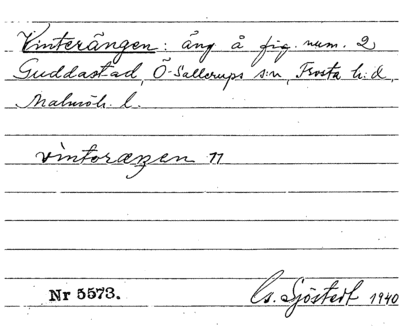 Vinterängen: äng å fig. num. 2
Guddastad, Ö. Sallerups s:n, Frosta h:d,
Malmöh. l.
vintoræŋen 11
Nr 5573.
Cs. Sjöstedt 1940